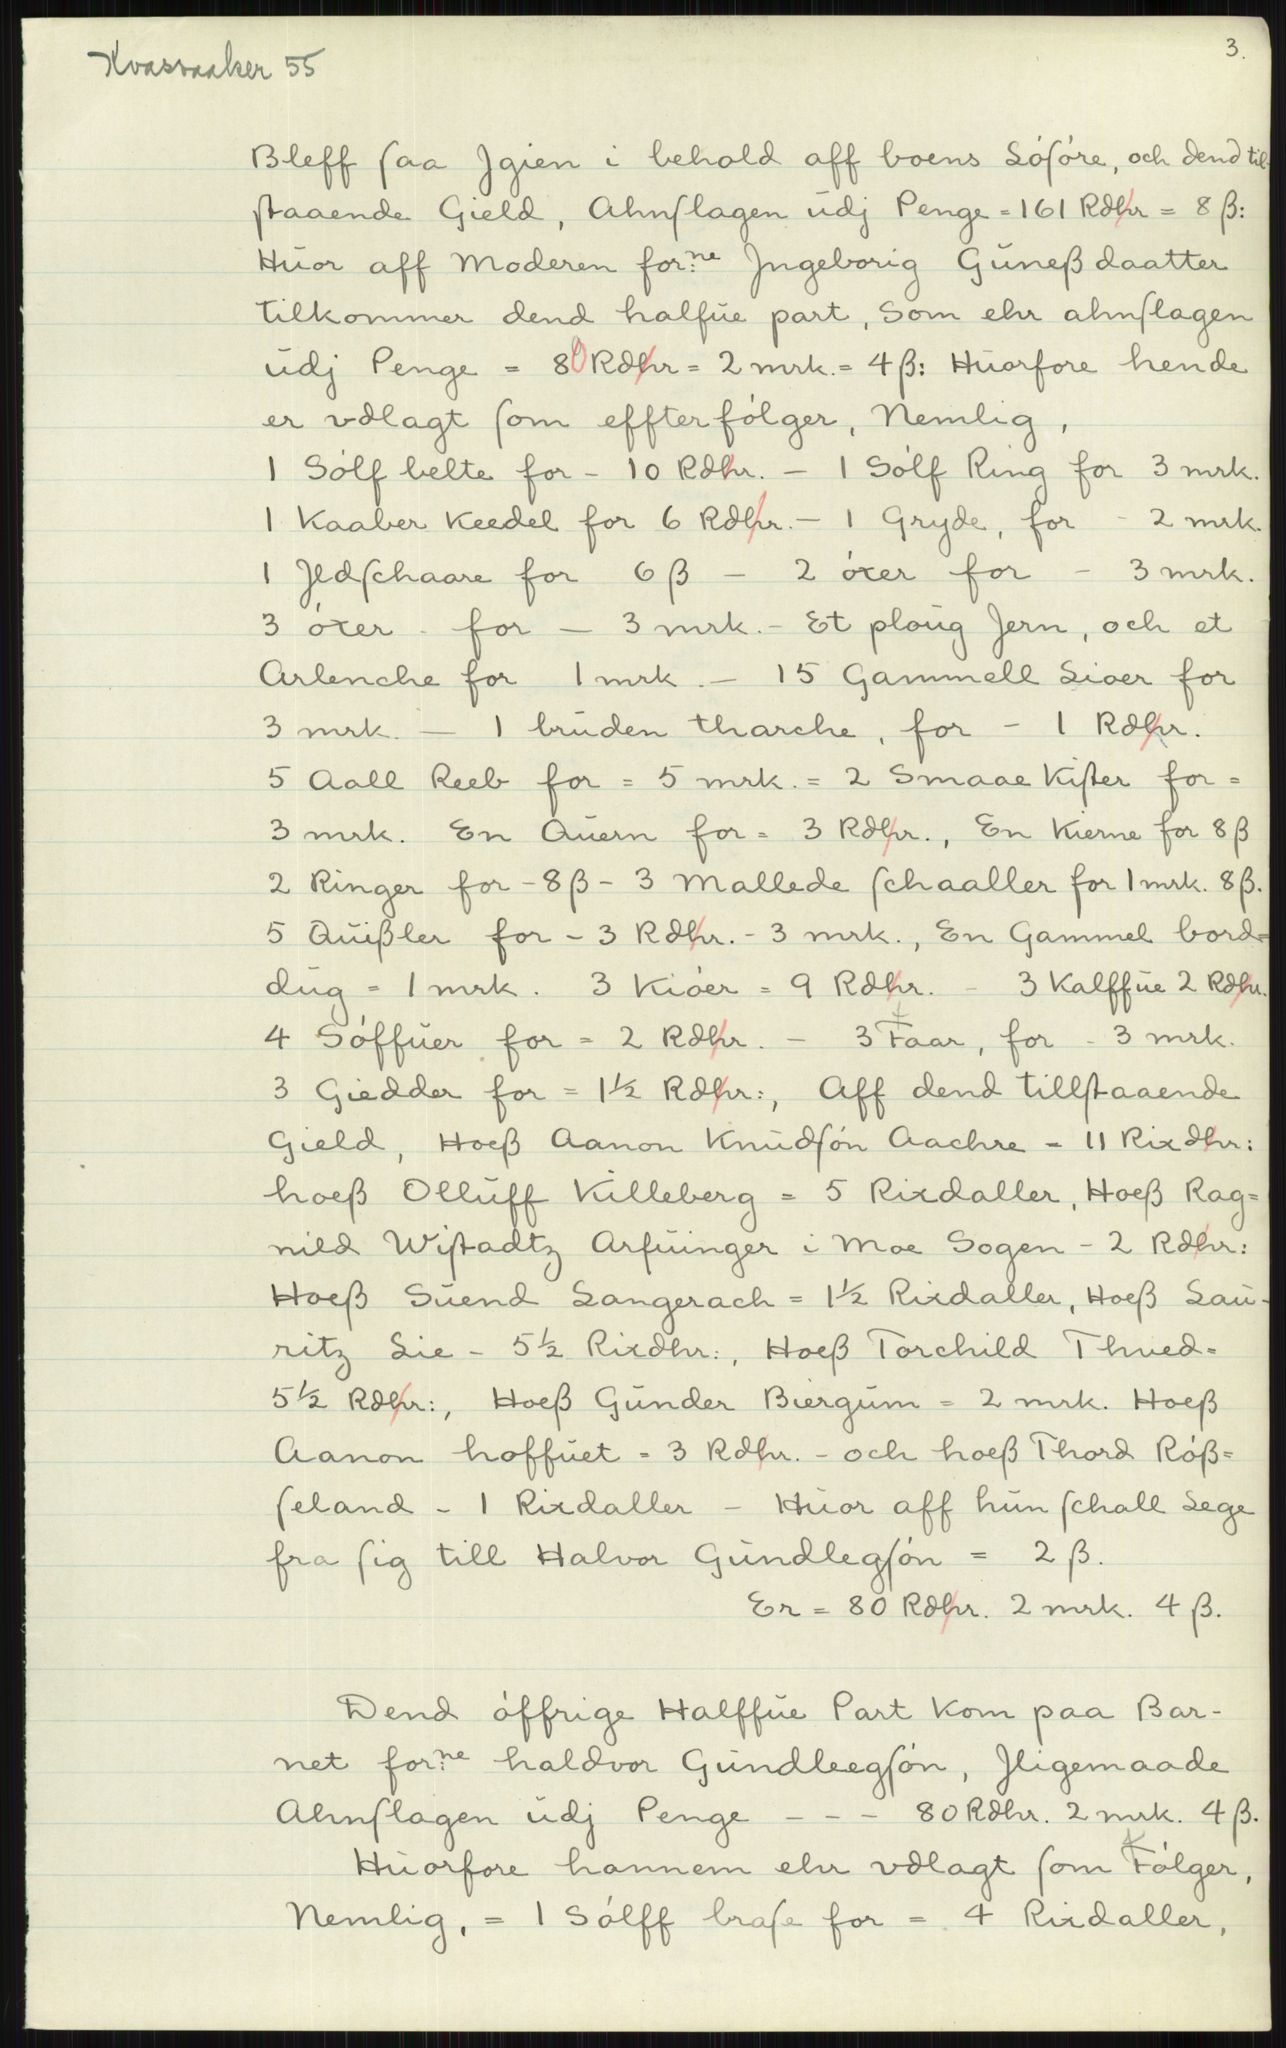 Kvasvaaker 55
3.
Bleff saa Jgien i behold aff boens Lósóre, och dend til-
staaende Gield, Ahnslagen udj Penge = 161 Rdhr = 8 ß:
Huor aff Moderen for:ne Jngeborig Guneßdaatter
tilkommer dend halfue part, Som ehr ahnslagen
udj Penge = 80 Rdhr = 2 mrk. = 4 ß: Huorfore hende
er vdlagt som effterfólger, Nemlig,
1 Sólf belte for - 10 Rdhr. - 1 Sólf Ring for 3 mrk.
1 Kaaber Keedel for 6 Rdhr. - 1 Gryde, for - 2 mrk.
1 Jldschaare for 6 ß - 2 óxer for - 3 mrk.
3 óxer - for - 3 mrk. - Et ploug Jern, och et
Arlenche for 1 mrk. - 15 Gammell Lioer for
3 mrk. - 1 bruden tharche, for - 1 Rdhr.
5 Aall Reeb for = 5 mrk. = 2 Smaae Kister for =
3 mrk. En Quern for = 3 Rdhr., En Kierne for 8 ß
2 Ringer for - 8 ß - 3 Mallede schaaller for 1 mrk. 8 ß.
5 Quißler for - 3 Rdhr. - 3 mrk., En Gammel bord=
dug = 1 mrk. 3 Kióer = 9 Rdhr. - 3 Kalffue 2 Rdhr.
4 Sóffuer for = 2 Rdhr. - 3 Faar, for - 3 mrk.
3 Giedder for = 1½ Rdhr:, Aff dend tillstaaende
Gield, Hoeß Aanon Knudsón Aachre = 11 Rixdhr:
hoeß Olluff Killeberg = 5 Rixdaller, Hoeß Rag=
nild Wistadtz Arfuinger i Moe Sogen - 2 Rdhr:
Hoeß Suend Langerach = 1½ Rixdaller, Hoeß Lau-
ritz Lie - 5½ Rixdhr:, Hoeß Torchild Thued=
5½ Rdhr:, Hoeß Gunder Biergum = 2 mrk. Hoeß
Aanon hoffuet = 3 Rdhr. - och hoeß Thord Róß=
seland - 1 Rixdaller - Huor aff hun schall Lege
fra sig till Halvor Gundlegsón = 2 ß.
Er = 80 Rdhr. 2 mrk. 4 ß.
Dend óffrige Halffue Part Kom paa Bar-
net for:ne haldvor Gundleegsón, Jligemaade
Ahnslagen udj Penge - - - 80 Rdhr. 2 mrk. 4 ß.
Huorfore hannem ehr vdlagt som Fólger,
Nemlig, = 1 Sólff brase for = 4 Rixdaller,